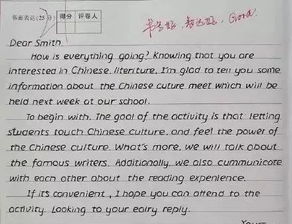 书面表达(25分) 得分 评卷人
书写好,表达好, Good.
Dear Smith,
How is everything going? Knowing that you are
interested in Chinese literiture, I'm glad to tell you some
information about the Chinese cuture meet which will be
held next week at our school.
To begin with, The goal of the activity is that letting
students touch Chinese culture, and feel the power of
the Chinese culture. What's more, we will talk about
the famous writers. Additionally, we also cummunicate
with each other about the reading experience.
If its convenient, I hope you can attend to the
activity. Looking to your eairy reply.
Yours